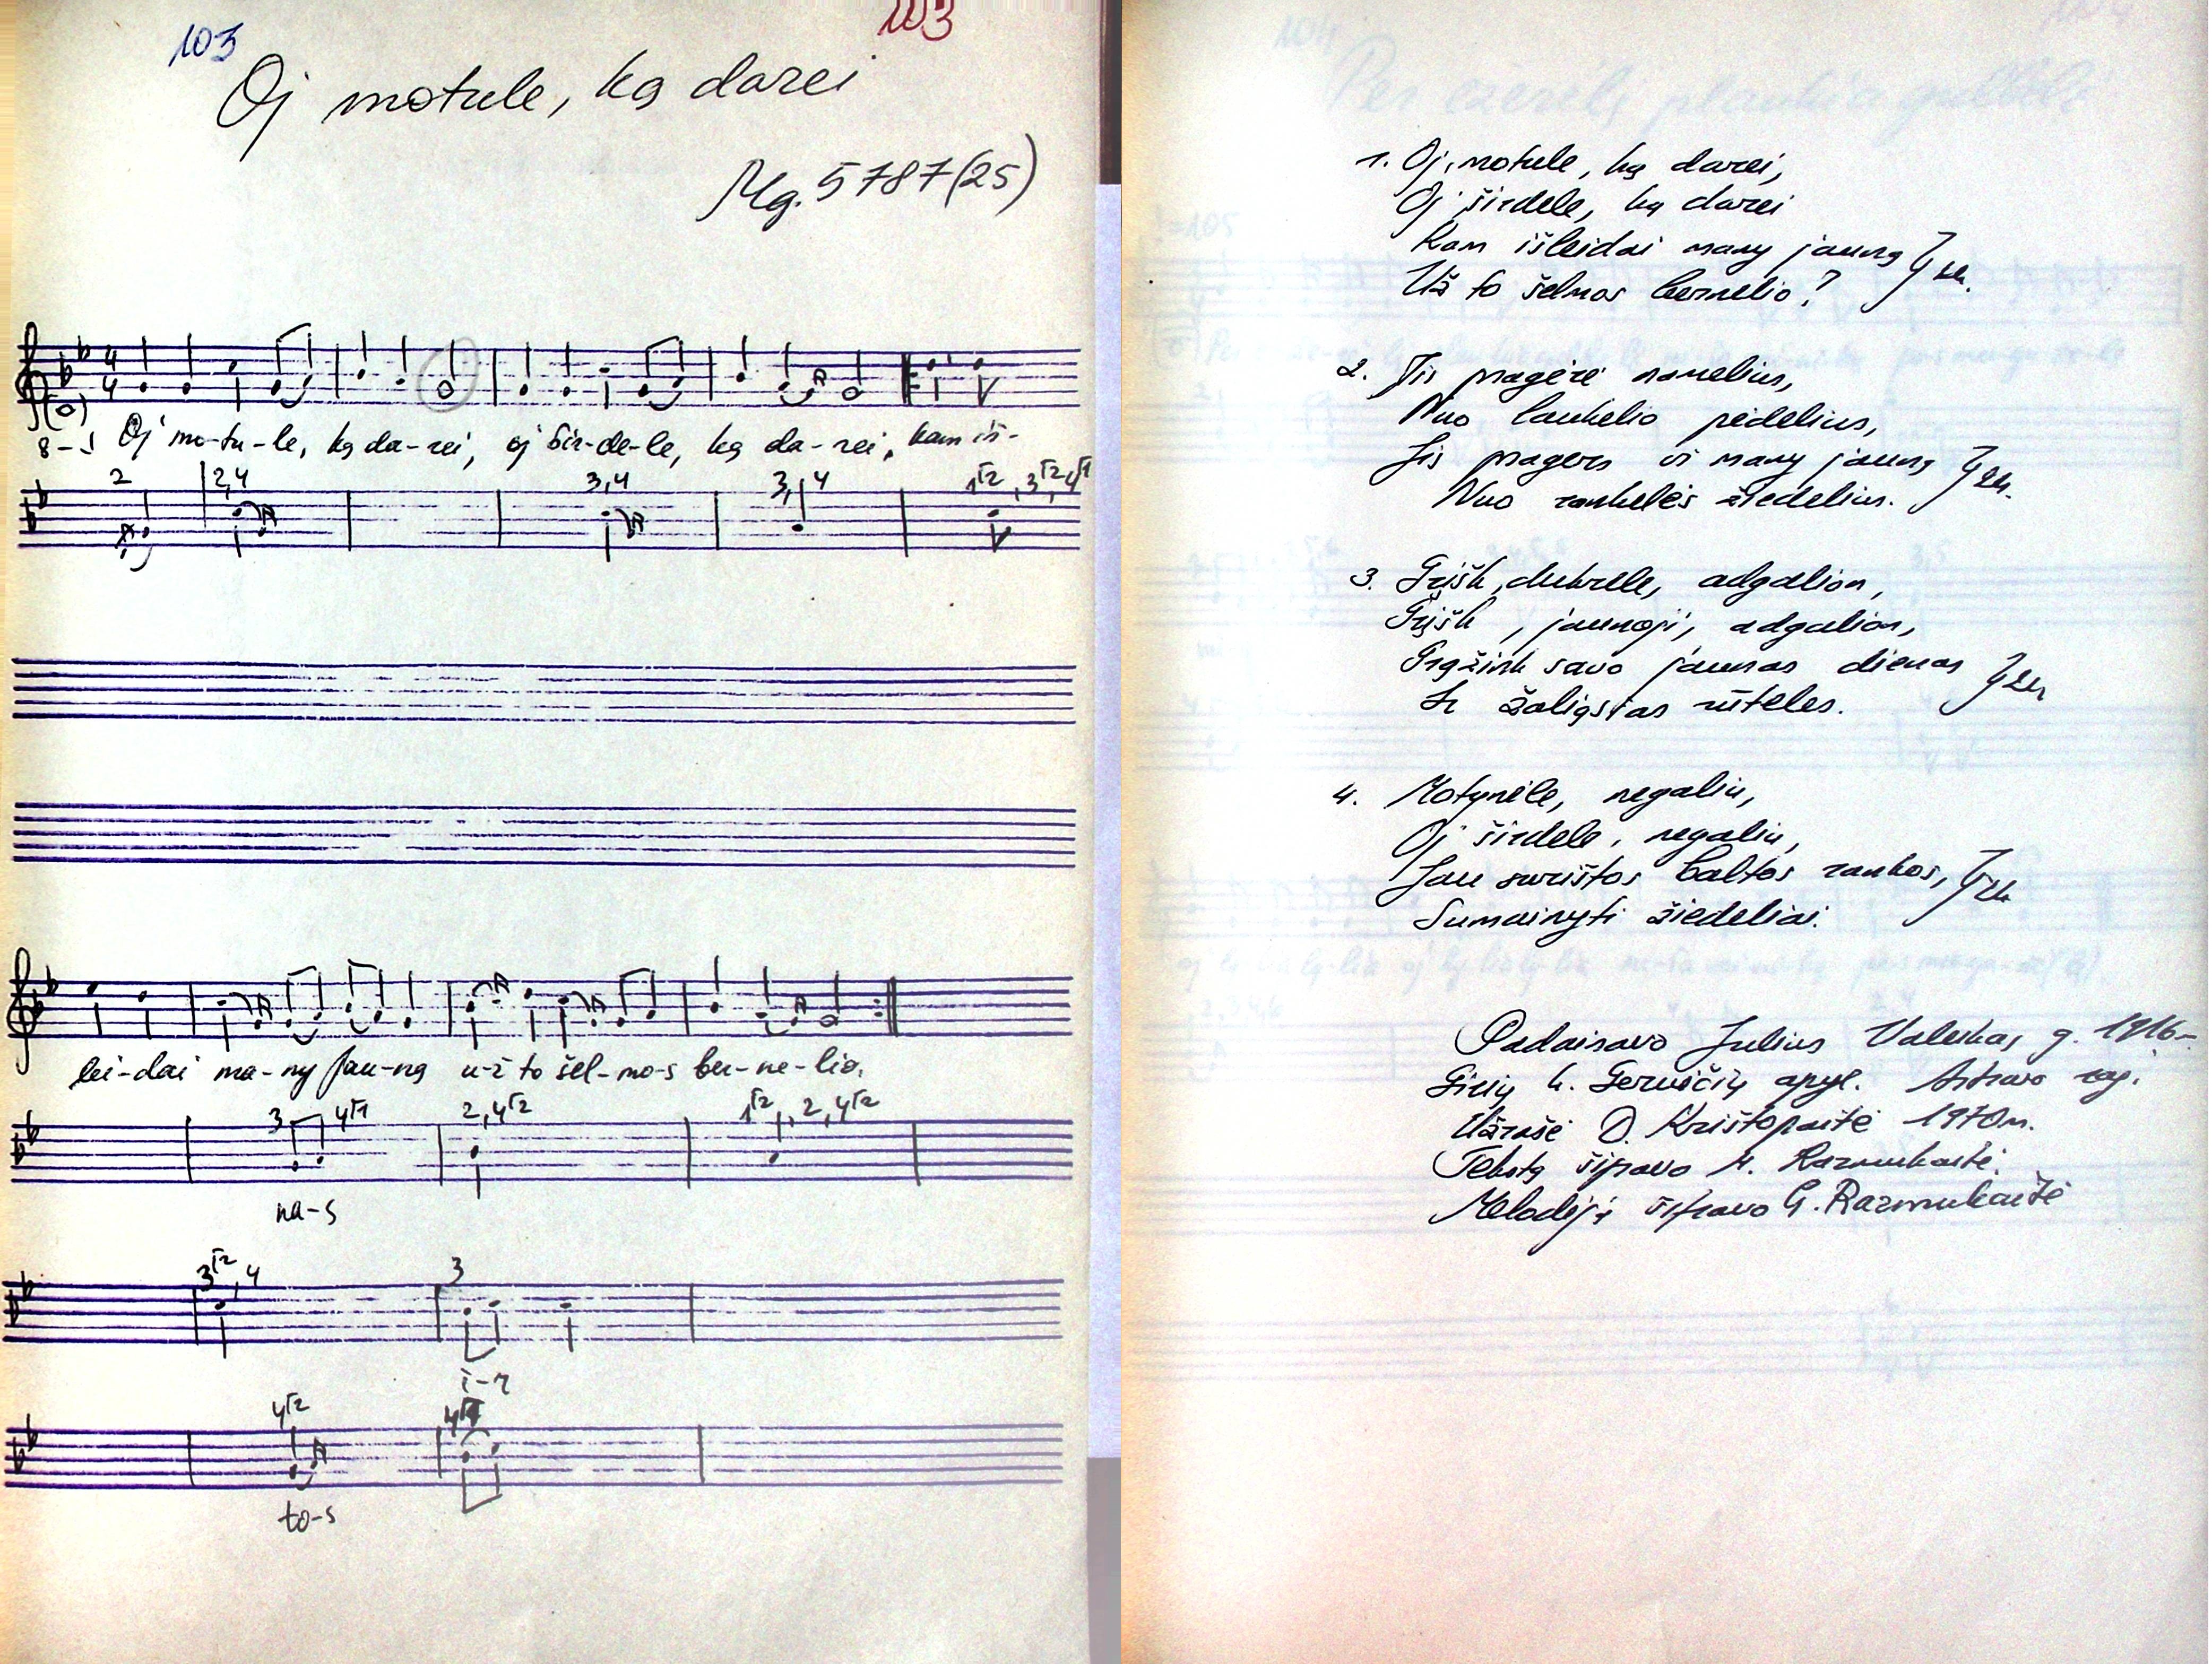 103
103
Oj motule, ką darei
Mg. 5787(25)
4
4
8
Oj mo-tu-le, ką da-rei, oj šir-de-le, ką da-rei, kam iš-
2
2,4
3,4
3, 4
lei-dai ma-ny jau-ną u-ž to šel-mo-s ber-ne-lio.
3
na-s
3
i-r
to-s
1. Oj, motule, ką darei,
Oj širdele, ką darei
Kam išleidai many jauną
Už to šelmos bernelio?
2. Jis pragėrė namelius,
Nuo laukelio pėdelius,
Jis pragers ir many jauną
Nuo rankelės žiedelius.
3. Grįšk, dukrele, adgalion,
Grįšk, jaunoji, adgalion,
Grąžink savo jaunas dienas
Ir žaliąsias rūteles.
4. Motynėle, negaliu,
Oj širdele, negaliu,
Jau surištos baltos rankos,
Sumainyti žiedeliai.
Padainavo Julius Valeikas g. 1916
Girių k. Gerviščių apyl. Astravo raj.
Užrašė D. Krištopaitė 1970m.
Tekstą šifravo Razmukaitė.
Melodiją šifravo G. Razmukaitė